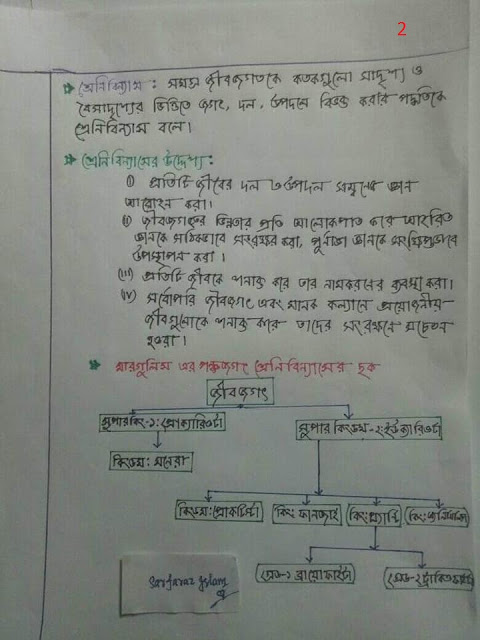 2
শ্রেণিবিন্যাস : সমগ্র জীবজগতকে কতকগুলো সাদৃশ্য ও
বৈসাদৃশ্যের ভিত্তিতে জগৎ, দল, উপদলে বিভক্ত করার পদ্ধতিকে
শ্রেণিবিন্যাস বলে।
শ্রেণিবিন্যাসের উদ্দেশ্য :
(i) প্রতিটি জীবের দল ও উপদল সম্বন্ধে জ্ঞান
আহোরন করা।
(ii) জীবজগৎের ভিন্নতার প্রতি আলোকপাত করে আহরিত
জ্ঞানকে সঠিকভাবে সংরক্ষন করা, পূর্ণাঙ্গ জ্ঞানকে সংক্ষিপ্তভাবে
উপস্থাপন করা।
(iii) প্রতিটি জীবকে শনাক্ত করে তার নামকরনের ব্যবস্থা করা।
(iv) সর্বোপরি জীবজগৎ এবং মানব কল্যানে প্রয়োজনীয়
জীবগুলোকে শনাক্ত করে তাদের সংরক্ষনে সচেতন
হওয়া।
মারগুলিস এর পঞ্চজগৎ শ্রেণিবিন্যাসের ছক
জীবজগৎ
সুপার কিং-১: প্রোক্যারিওটা
সুপার কিংডম-২: ইউক্যারিওটা
কিংডম: মনেরা
কিংডম: প্রোকটিস্টা
কিং: ফানজাই
কিং: প্ল্যান্টি
কিং:
গ্রেড-১ ব্রায়োফাইটা
গ্রেড-২
Sarfaraz Islam